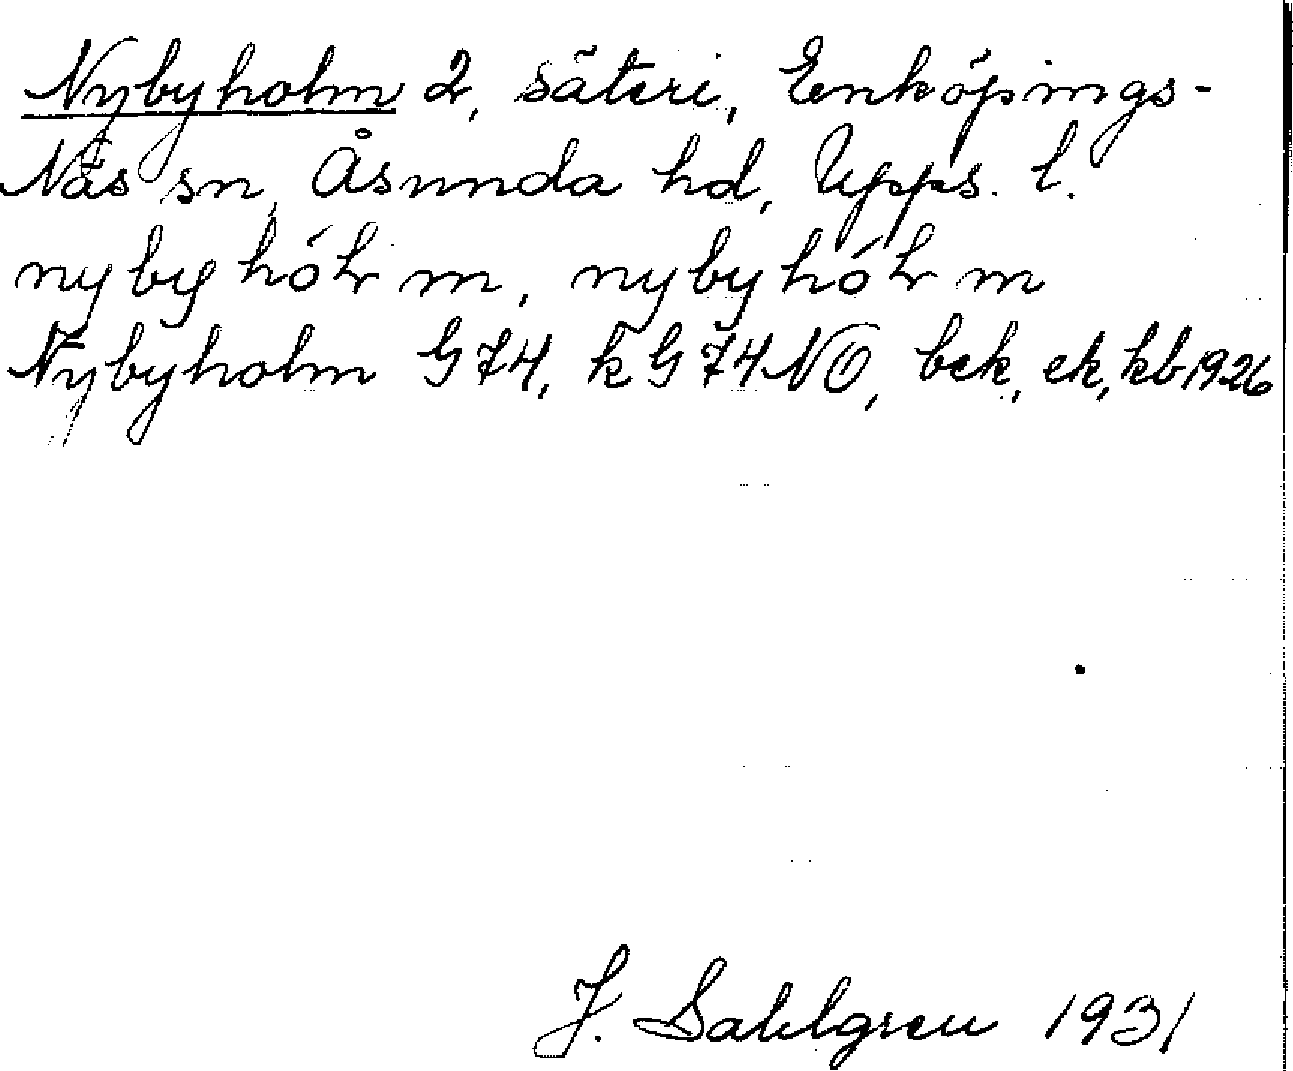 Nybyholm 2, säteri, Enköpings-
Näs sn, Åsunda hd, Upps. l.
nybyhóƚm, nybyhóƚm
Nybyholm G74, kG74NO, bek, ek, kb 1926
J. Sahlgren 1931